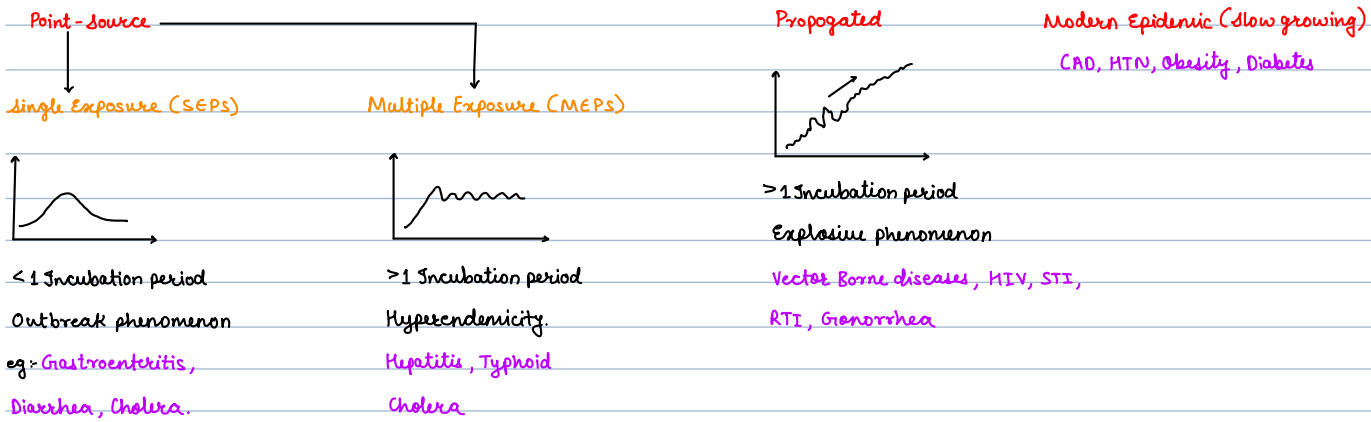 Point-Source
Single Exposure (SEPs)
<1 Incubation period
Outbreak phenomenon
eg:- Gastroenteritis,
Diarrhea, Cholera.
Multiple Exposure (MEPs)
>1 Incubation period
Hyperendemicity.
Hepatitis, Typhoid
Cholera
Propogated
>1 Incubation period
Explosive phenomenon
Vector Borne diseases, HIV, STI,
RTI, Gonorrhea
Modern Epidemic (Slow growing)
CAD, HTN, Obesity, Diabetes